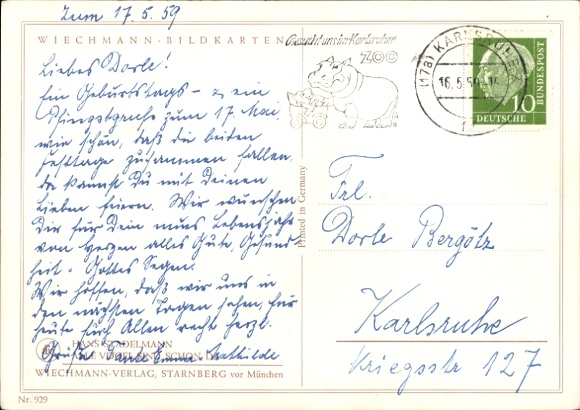 Zum 17.5.59
WIECHMANN-BILDKARTEN
Besucht uns im Karlsruher
ZOO
(17a) KARLSRUHE
16.5.59
10
DEUTSCHE
BUNDESPOST
Liebes Dorle!
Ein Geburtstags- & ein
Pfingstgruß zum 17. Mai
wie schön, daß die beiden
Festtage zusammen fallen,
da kannst Du mit Deinen
Lieben feiern. Wir wünschen
Dir für Dein neues Lebensjahr
von Herzen alles Gute, Gesund-
heit & Gottes Segen.
Wir hoffen, daß wir uns in
den nächsten Tagen sehen, für
heute Euch Allen recht herzl.
Grüße Tante Emma Mathilde
HANS STADELMANN
ALLE VÖGEL SIND SCHON DA
WIECHMANN-VERLAG, STARNBERG vor München
Nr. 929
Printed in Germany
Frl.
Dorle Bergötz
Karlsruhe
Kriegsstr 127